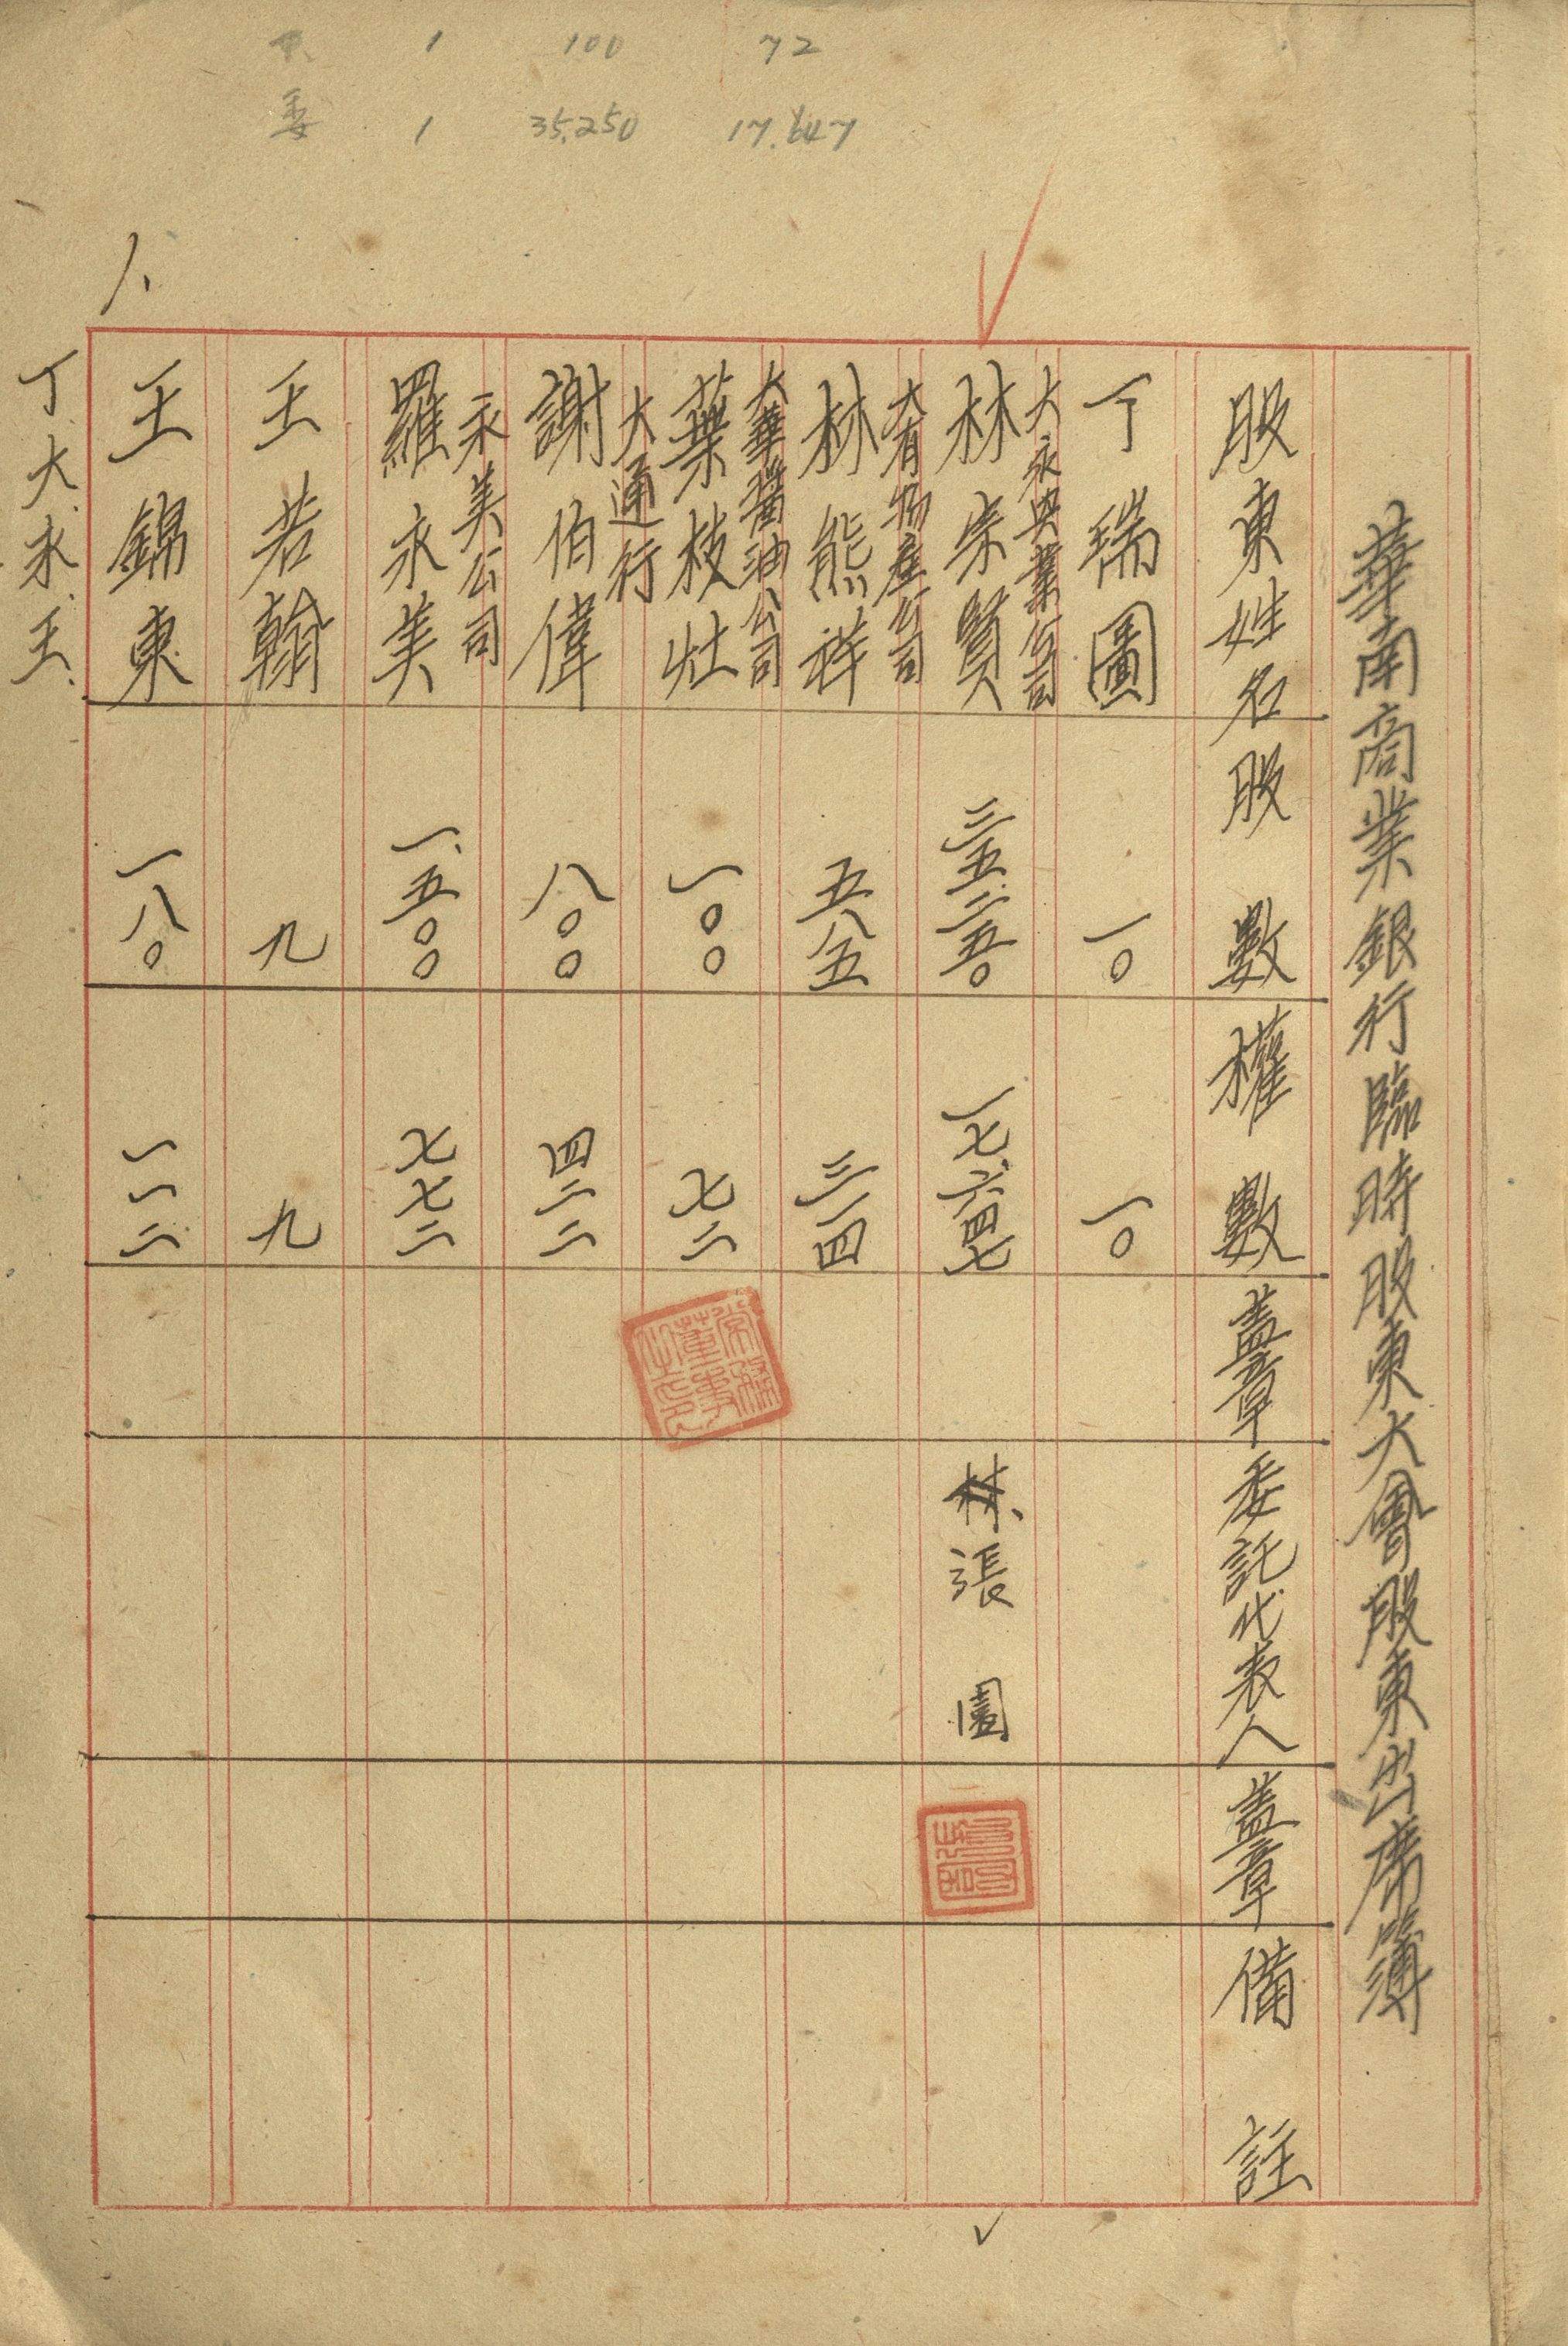 華南商業銀行臨時股東大會股東出席簿
股東姓名 股數 權數 蓋章 委託代表人 蓋章 備註
丁瑞圖 一〇 一〇
大永興業公司
林崇賢 三五.二五〇 一七.六四七 張園
大有物產公司
林熊祥 五八五 三一四
大華醬油公司
葉枝灶 一〇〇 七二
大通行
謝伯偉 八〇〇 四二二
永美公司
羅永美 一.五〇〇 七七二
王若翰 九 九
王錦東 一八〇 一一二
丁.大.永.王.
1 100 72
委 1 35,250 17.647
常務董事之印